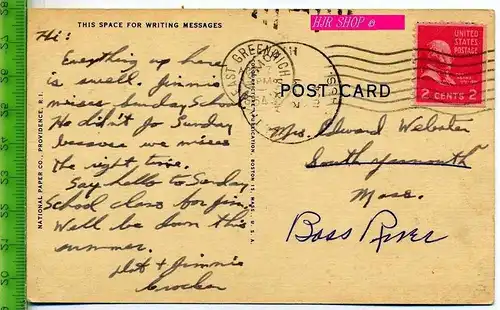 THIS SPACE FOR WRITING MESSAGES
HJR SHOP ®
Hi:
Everything up here
is swell. Jimmie
misses Sunday School
He didn't go Sunday
because we misses
the right time.
Say hello to Sunday
School class for Jim.
We'll be down this
summer.
Dot + Jimmie
Crocker
NATIONAL PAPER CO., PROVIDENCE, R.I.
EAST GREENWICH
PM
UNITED STATES
POSTAGE
2 CENTS 2
POST CARD
Mrs. Edward Webster
South Yarmouth
Mass.
Bass River